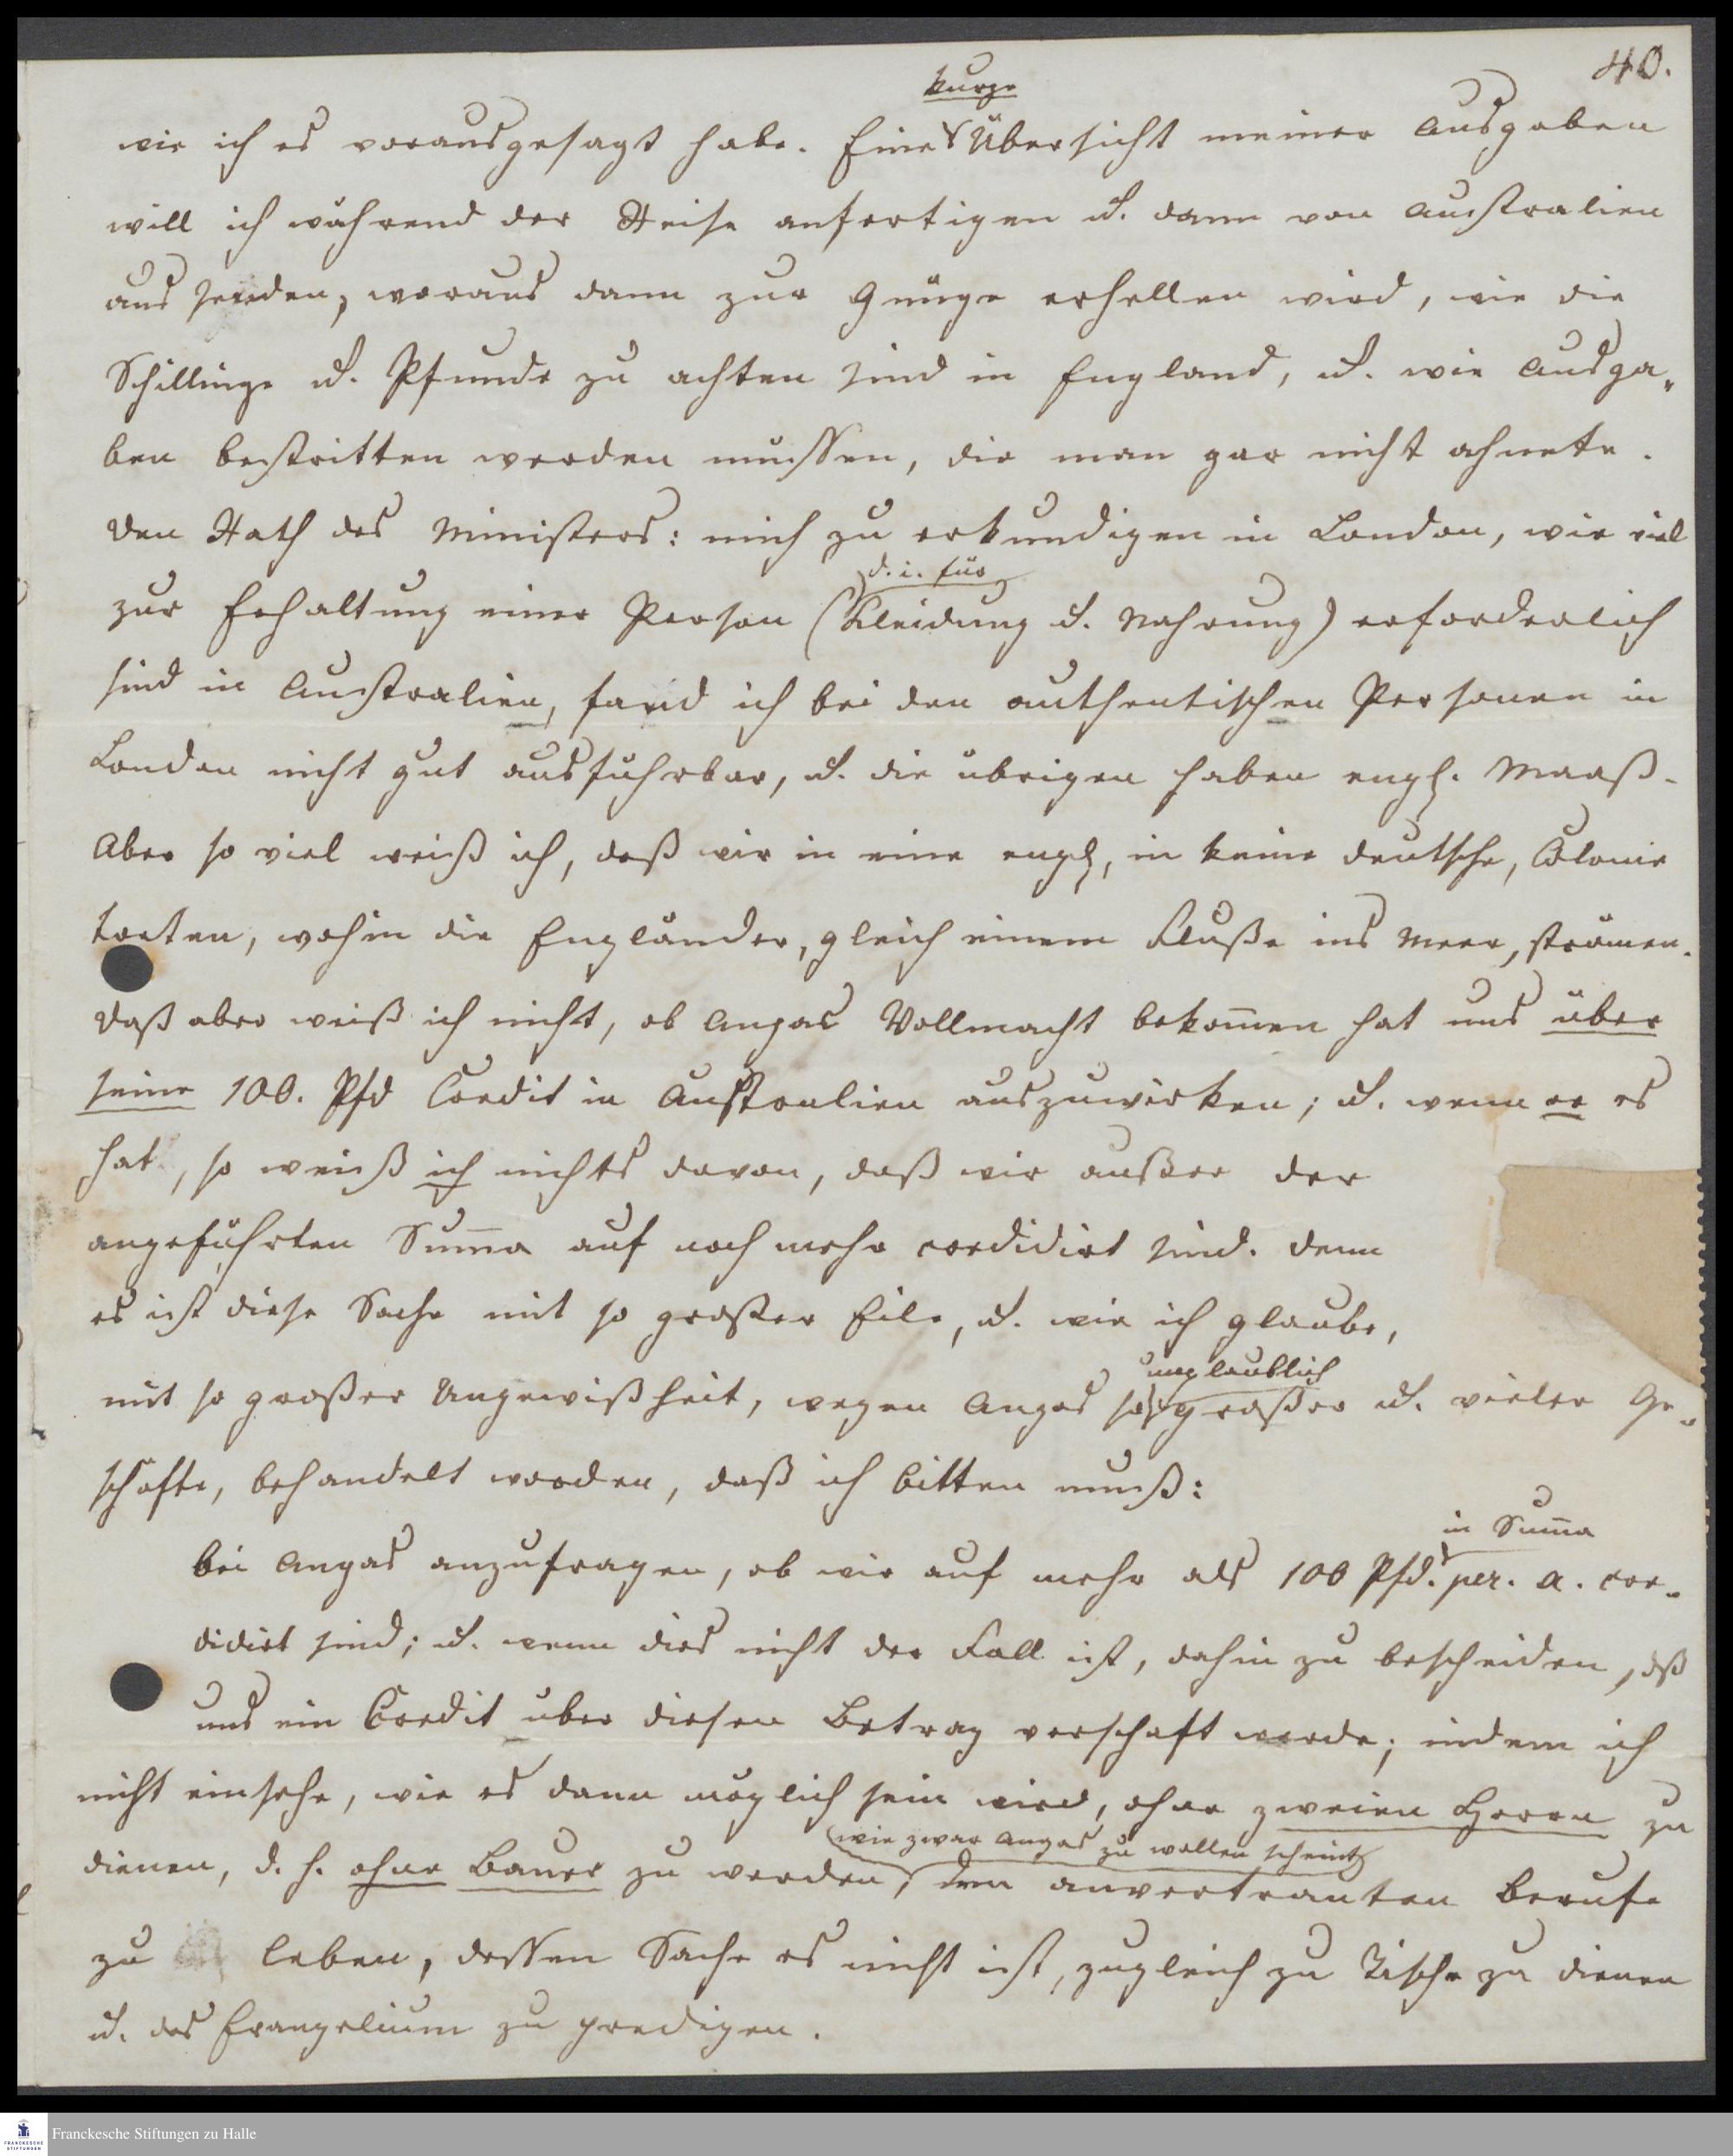 40.
kurze
wie ich es vorausgesagt habe. Eine Übersicht meiner Ausgaben
will ich während der Reise anfertigen u. dann von Australien
aus senden, woraus dann zur Gnüge erhellen wird, wie die
Schillinge u. Pfunde zu achten sind in England, u. wie Ausga„
ben bestritten werden müssen, die man gar nicht ahnete.
Den Rath des Ministers: mich zu erkundigen in London, wie viel
d. i. für
zur Erhaltung einer Person (Kleidung u. Nahrung) erforderlich
sind in Australien, fand ich bei den authentischen Personen in
London nicht gut ausführbar, u. die übrigen haben engl. Maaß.
Aber so viel weiß ich, daß wir in eine engl, in keine deutsche, Colonie
treten, wohin die Engländer, gleich einem Fluße ins Meer, strömen.
Daß aber weiß ich nicht, ob Angas Vollmacht bekom̄en hat uns über
seine 100. Pfd Credit in Australien auszuwirken; u. wenn er es
hat, so weiß ich nichts davon, daß wir außer der
angeführten Sum̄a auf noch mehr credidirt sind. Denn
es ist diese Sache mit so großer Eile, u. wie ich glaube,
unglaublich
mit so großer Ungewißheit, wegen Angas so großer u. vieler Ge„
schäfte, behandelt worden, daß ich bitten muß:
in Sum̄a
bei Angas anzufragen, ob wir auf mehr als 100 Pfd. per. a. cre„
didirt sind; u. wenn dies nicht der Fall ist, dahin zu bescheiden, dß
uns ein Credit über diesen Betrag verschaft werde; indem ich
nicht einsehe, wie es dann möglich sein wird, ohne zweien Herrn zu
wie zwar Angas zu wollen scheint
dienen, d. h. ohne Bauer zu werden, dem anvertrauten Berufe
zu leben, dessen Sache es nicht ist, zugleich zu Tische zu dienen
u. das Evangelium zu predigen.
FRANCKESCHE
STIFTUNGEN
Franckesche Stiftungen zu Halle